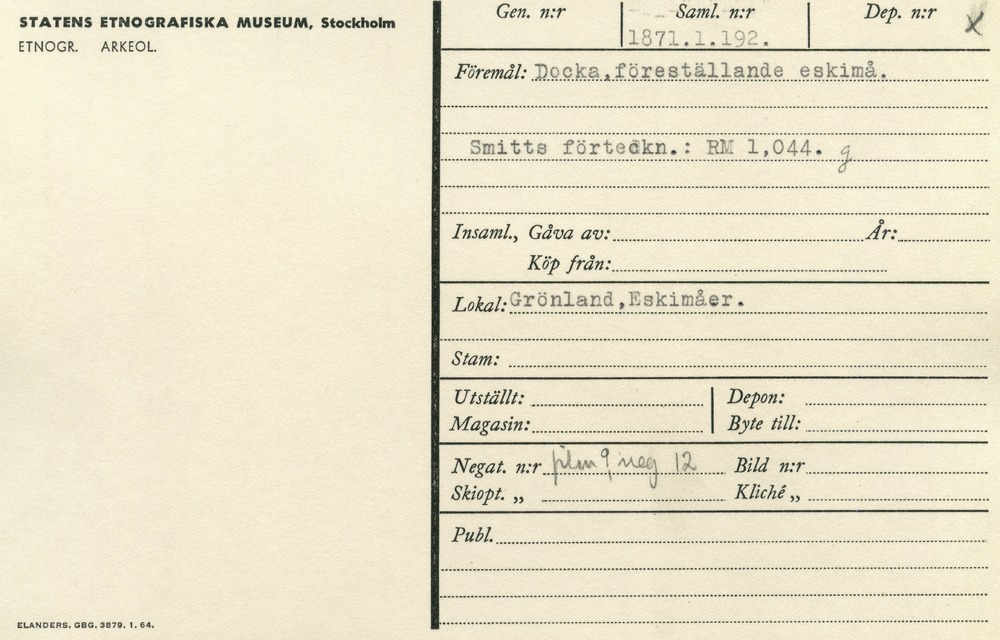 STATENS ETNOGRAFISKA MUSEUM, Stockholm
ETNOGR. ARKEOL.
Gen. n:r Saml. n:r Dep. n:r x
1871.1.192.
Föremål: Docka,föreställande eskimå.
Smitts förteckn.: RM 1,044. g
Insaml., Gåva av: År:
Köp från:
Lokal: Grönland,Eskimåer.
Stam:
Utställt: Depon:
Magasin: Byte till:
Negat. n:r film 9, neg 12 Bild n:r
Skiopt. „ Kliché „
Publ.
ELANDERS. GBG. 3879. 1. 64.